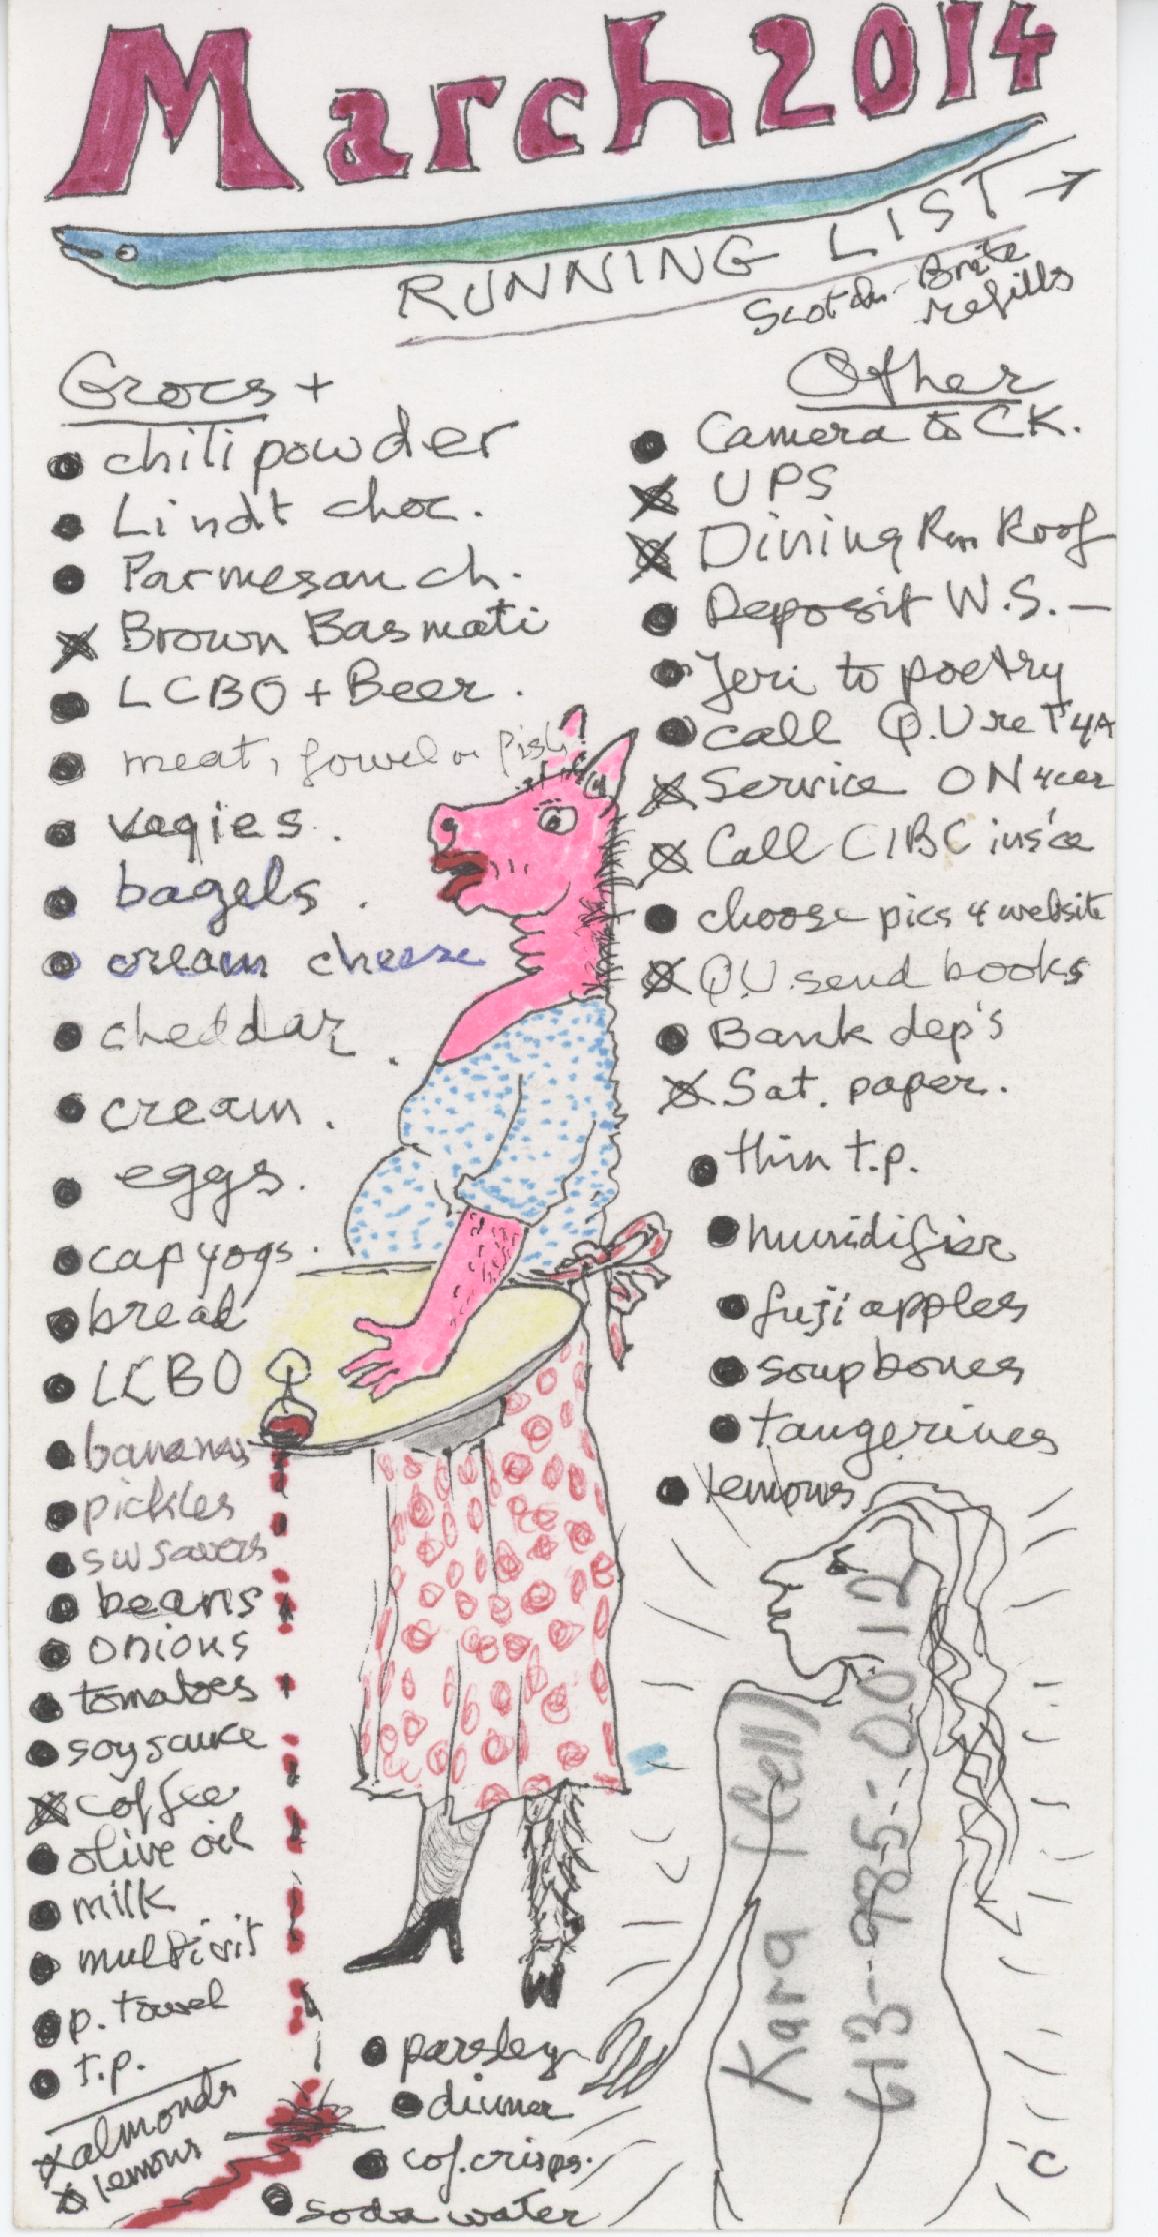 March 2014
RUNNING LIST →
Scotch-Brite
refills
Grocs +
chili powder
Lindt choc.
Parmesan ch.
Brown Basmati
LCBO + Beer.
meat, fowel or fish
vegies.
bagels.
cream cheese
cheddar.
cream.
eggs.
cap yogs.
bread
LCBO
bananas
pickles
sw savers
beans
onions
tomatoes
soy sauce
coffee
olive oil
milk
multivit
p. towel
t.p.
almonds
lemons
Other
Camera to CK.
UPS
Dining Rm Roof
Deposit W.S. —
Jeri to poetry
call Q.U re T4A
Service ON 4 car
Call CIBC ins'ce
choose pics 4 website
Q.U. send books
Bank dep's
Sat. paper.
thin t.p.
humidifier
fuji apples
soup bones
tangerines
lemons
parsley
dinner
cof. crisps.
soda water
Kara (cell)
613-985-0012